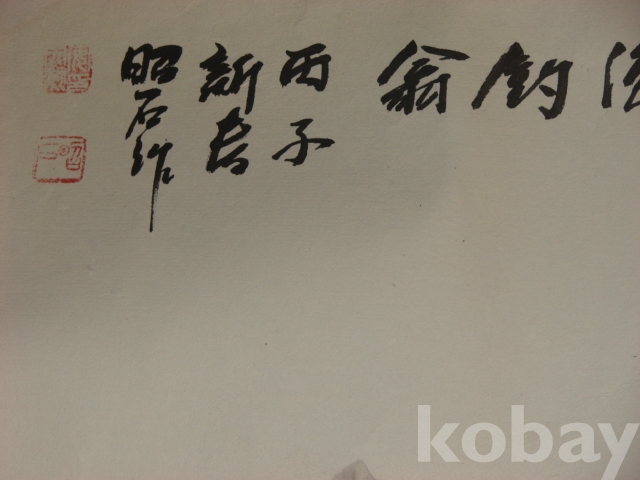 釣翁
丙子
新春
昭石作
kobay